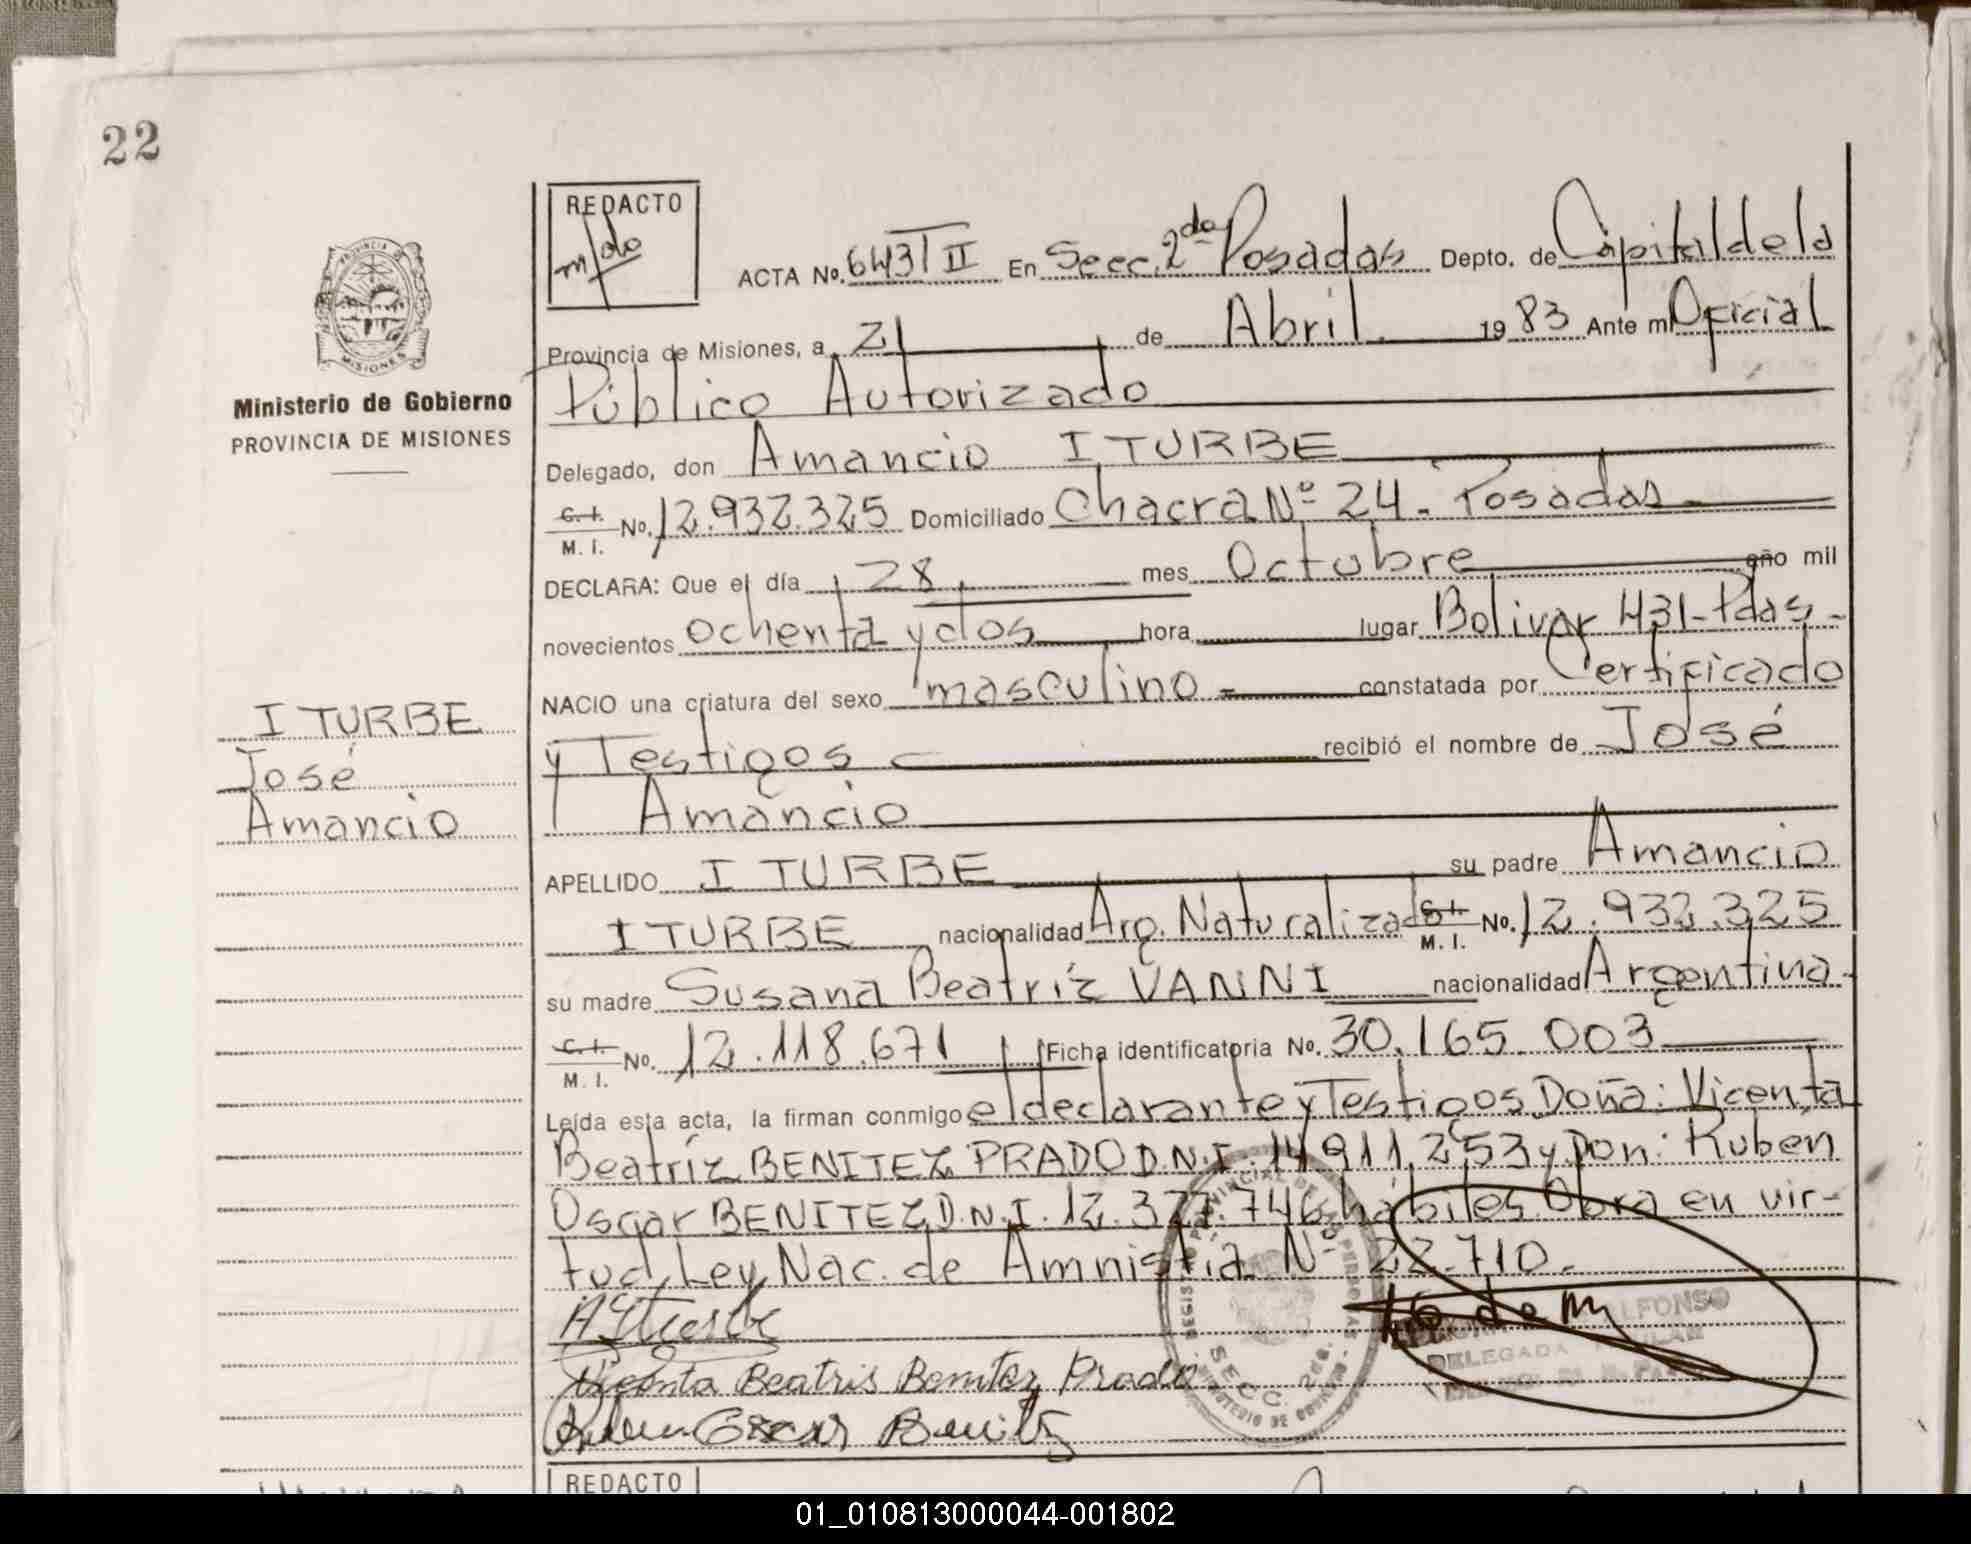 22
REDACTO
ACTA No. 643 T II En Secc. 2da Posadas Depto. de Capital de la
Provincia de Misiones, a 21 de Abril 1983 Ante mi Oficial
Público Autorizado
Delegado, don Amancio ITURBE
C. I. M. I. No. 12.932.325 Domiciliado Chacra Nº 24 - Posadas
DECLARA: Que el día 28 mes Octubre año mil
novecientos ochenta y dos hora lugar Bolivar 431 - Pdas -
NACIO una criatura del sexo masculino constatada por Certificado
y Testigos recibió el nombre de José
Amancio
APELLIDO ITURBE su padre Amancio
ITURBE nacionalidad Arg. Naturalizado C. I. M. I. No. 12.932.325
su madre Susana Beatríz VANNI nacionalidad Argentina
C. I. M. I. No. 12.118.671 Ficha identificatoria No. 30.165.003
Leída esta acta, la firman conmigo el declarante y Testigos Doña: Vicenta
Beatríz BENITEZ PRADO D.N.I. 14.911.253 y Don: Ruben
Oscar BENITEZ D.N.I. 12.377.746 hábiles. Obra en vir-
tud Ley Nac. de Amnistia Nº 22.710.
Vicenta Beatris Benitez Prado
Ruben Oscar Benitez
ALFONSO
DELEGADA
SECC. 2da.
PROVINCIA DE
MISIONES
Ministerio de Gobierno
PROVINCIA DE MISIONES
ITURBE
José
Amancio
REDACTO
01_010813000044-001802